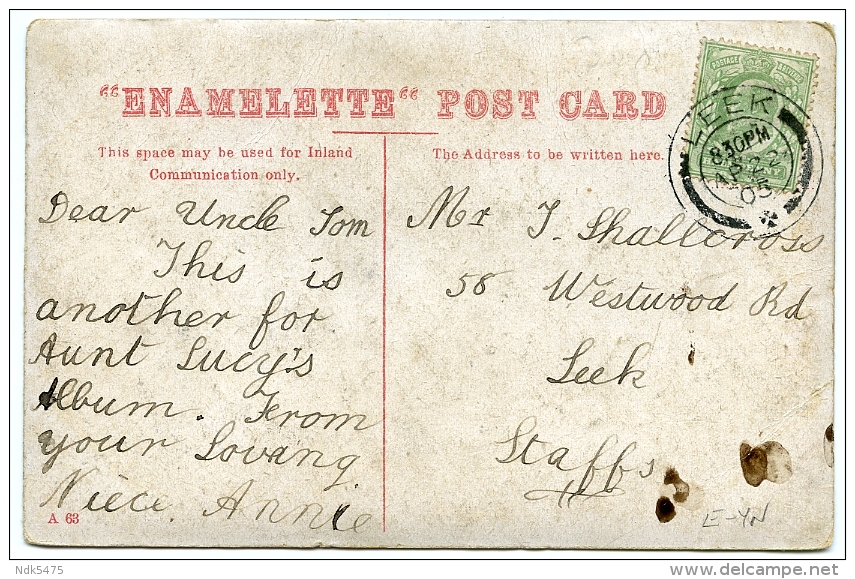 "ENAMELETTE" POST CARD
This space may be used for Inland
Communication only.
The Address to be written here.
LEEK
8.30PM
AP 22
05
Dear Uncle Tom
This is
another for
Aunt Lucy's
Album. From
your Lovang
Niece. Annie
A 63
Mr T. Shallcross
58 Westwood Rd
Leek
Staffs
E-YN
Ndk5475
delcampe.net